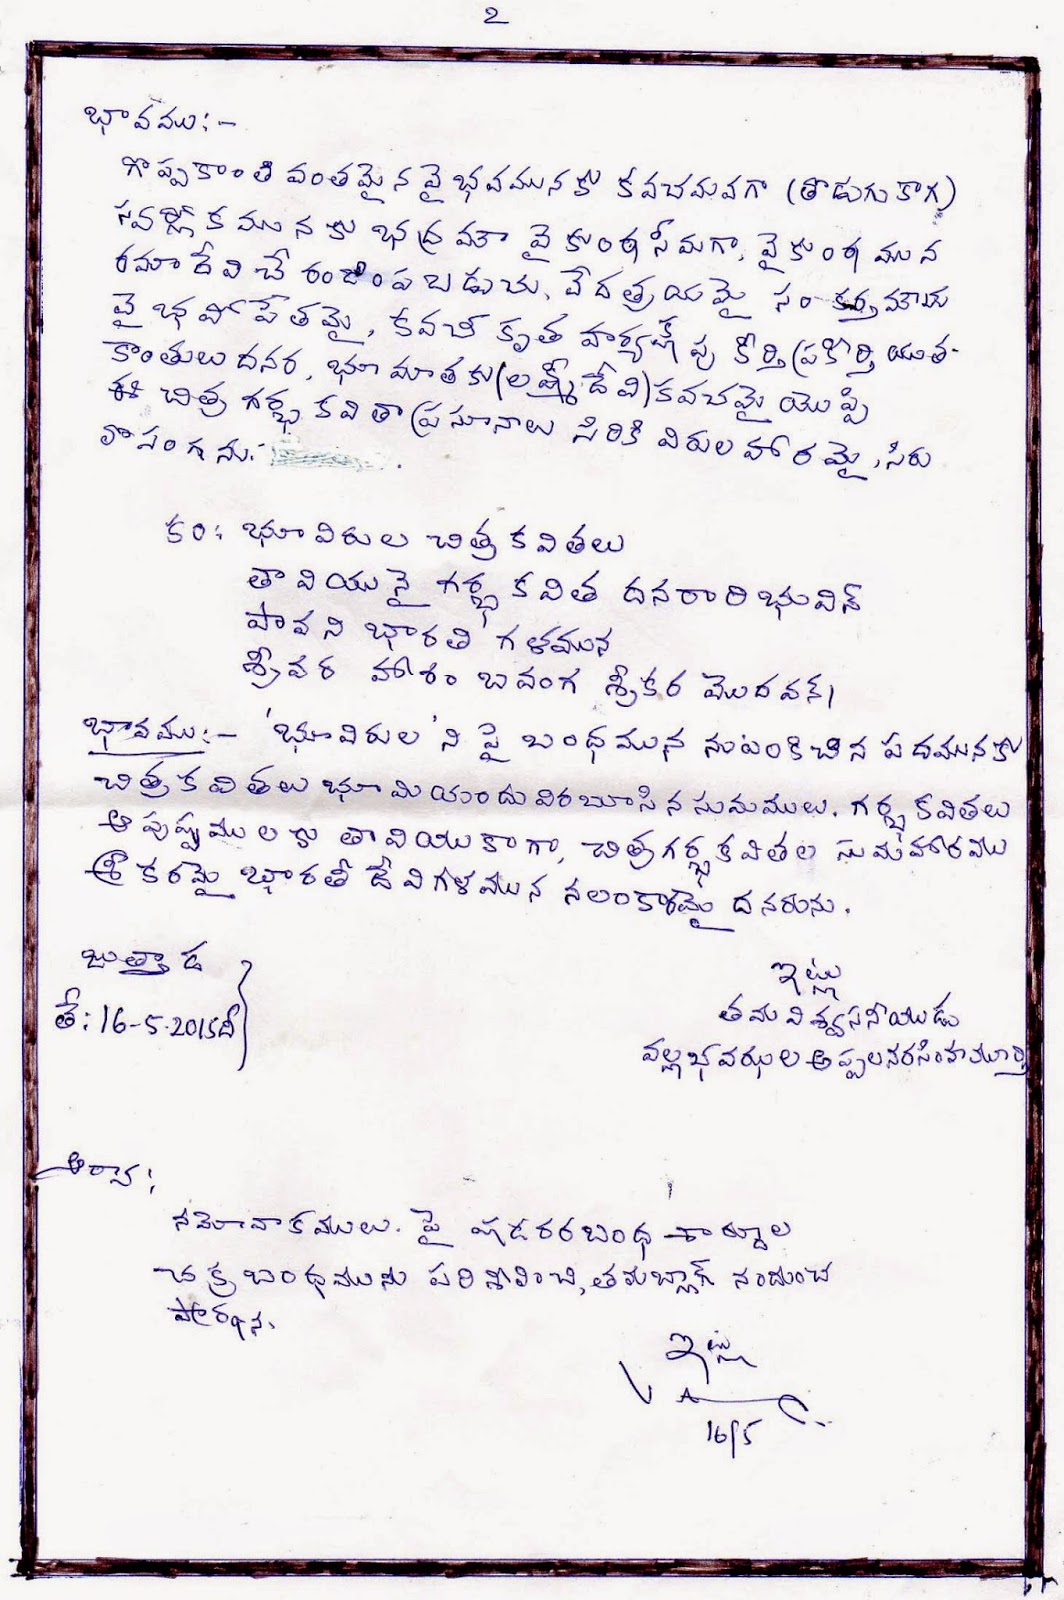 2
భావము:-
గొప్పకాంతి వంతమైన వైభవమునకు కవచమవగా (తొడుగుకాగ)
భద్రమౌ వైకుంఠసీమగా, వైకుంఠమున
రమాదేవిచే రంజింపబడుచు, వేదత్రయమై
వైభవోపేతమై, కీర్తి ప్రకీర్తి యుత-
కాంతులుదనర, భూమాతకు (లక్ష్మీదేవి) కవచమై యొప్పి
ఈ చిత్ర గర్భ కవితా ప్రసూనాలు సిరికి విరుల హారమై, సిరు
లొసంగును.
కం: భూవిరుల చిత్ర కవితలు
తావియునై గర్భ కవిత దనరారిభువిన్
పావని భారతి గళమున
శ్రీవర హారం బవంగ శ్రీకర మొదవన్।
భావము:- 'భూవిరుల' ని పై బంధమున నుటంకించిన పదమునకు
చిత్రకవితలు భూమియందు విరబూసిన సుమములు. గర్భకవితలు
ఆ పుష్పములకు తావియు కాగా, చిత్రగర్భకవితల సుమహారము
శ్రీకరమై భారతీదేవిగళమున నలంకారమై దనరును.
జుత్తాడ
తే: 16-5-2015ది
ఇట్లు
తమవిశ్వసనీయుడు
వల్లభవఝల అప్పలనరసింహమూర్తి
ఆర్యా;
నమోవాకములు. పై షడరరబంధ శార్దూల
చక్రబంధమును పరిశీలించి, తమబ్లాగ్ నందుంచ
ప్రార్థన.
ఇట్లు
V A
16/5